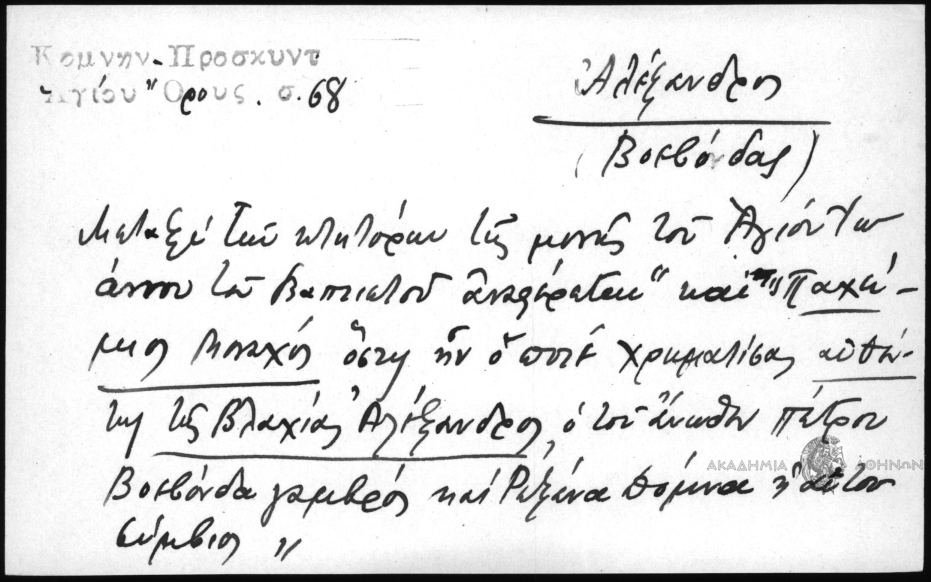 Κομνην. Προσκυντ
Ἁγίου Ὄρους. σ. 68
Ἀλέξανδρος
(Βοεβόνδας)
Μεταξὺ τῶν κτητόρων τῆς μονῆς τοῦ Ἁγίου Ἰω
άννου τοῦ Βαπτιστοῦ ἀναφέρεται καὶ "Παχώ-
μιος Μοναχός ὅστις ἦν ὁ ποτὲ χρηματίσας αὐθέν-
της τῆς Βλαχίας Ἀλέξανδρος, ὁ τοῦ ἄνωθεν Πέτρου
Βοεβόνδα γαμβρός καὶ Ρωξάνα Δόμνα ἡ αὐτοῦ
σύμβιος "
ΑΚΑΔΗΜΙΑ ΑΘΗΝΩΝ